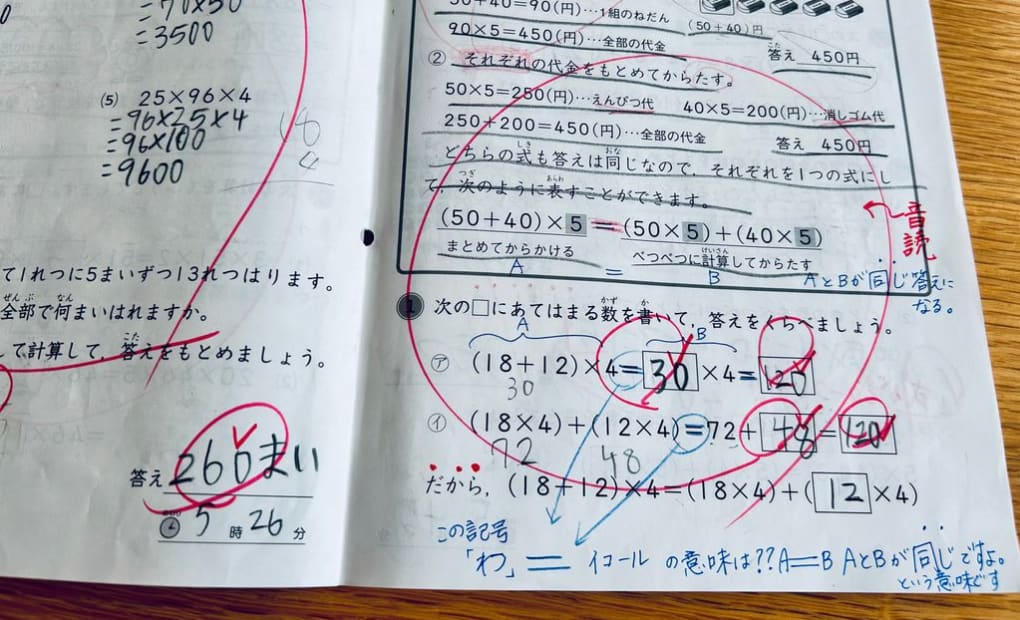 =70×50
=3500
(5) 25×96×4
=96×25×4
=96×100
=9600
て1れつに5まいずつ13れつはります。
全部で何まいはれますか。
して計算して,答えをもとめましょう。
答え 260まい
5時26分
50+40=90(円)…1組のねだん
(50+40)円
90×5=450(円)…全部の代金
答え 450円
② それぞれの代金をもとめてからたす。
50×5=250(円)…えんぴつ代 40×5=200(円)…消しゴム代
250+200=450(円)…全部の代金 答え 450円
どちらの式も答えは同じなので,それぞれを1つの式にし
て,次のように表すことができます。
(50+40)×5=(50×5)+(40×5)
まとめてからかける べつべつに計算してからたす
A = B
音読
AとBが同じ答えになる。
1 次の□にあてはまる数を書いて,答えをくらべましょう。
A B
㋐ (18+12)×4=30×4=120
30
㋑ (18×4)+(12×4)=72+48=120
72 48
だから,(18+12)×4=(18×4)+(12×4)
この記号
「わ」= イコール の意味は??A=B AとBが同じですよ。
という意味です